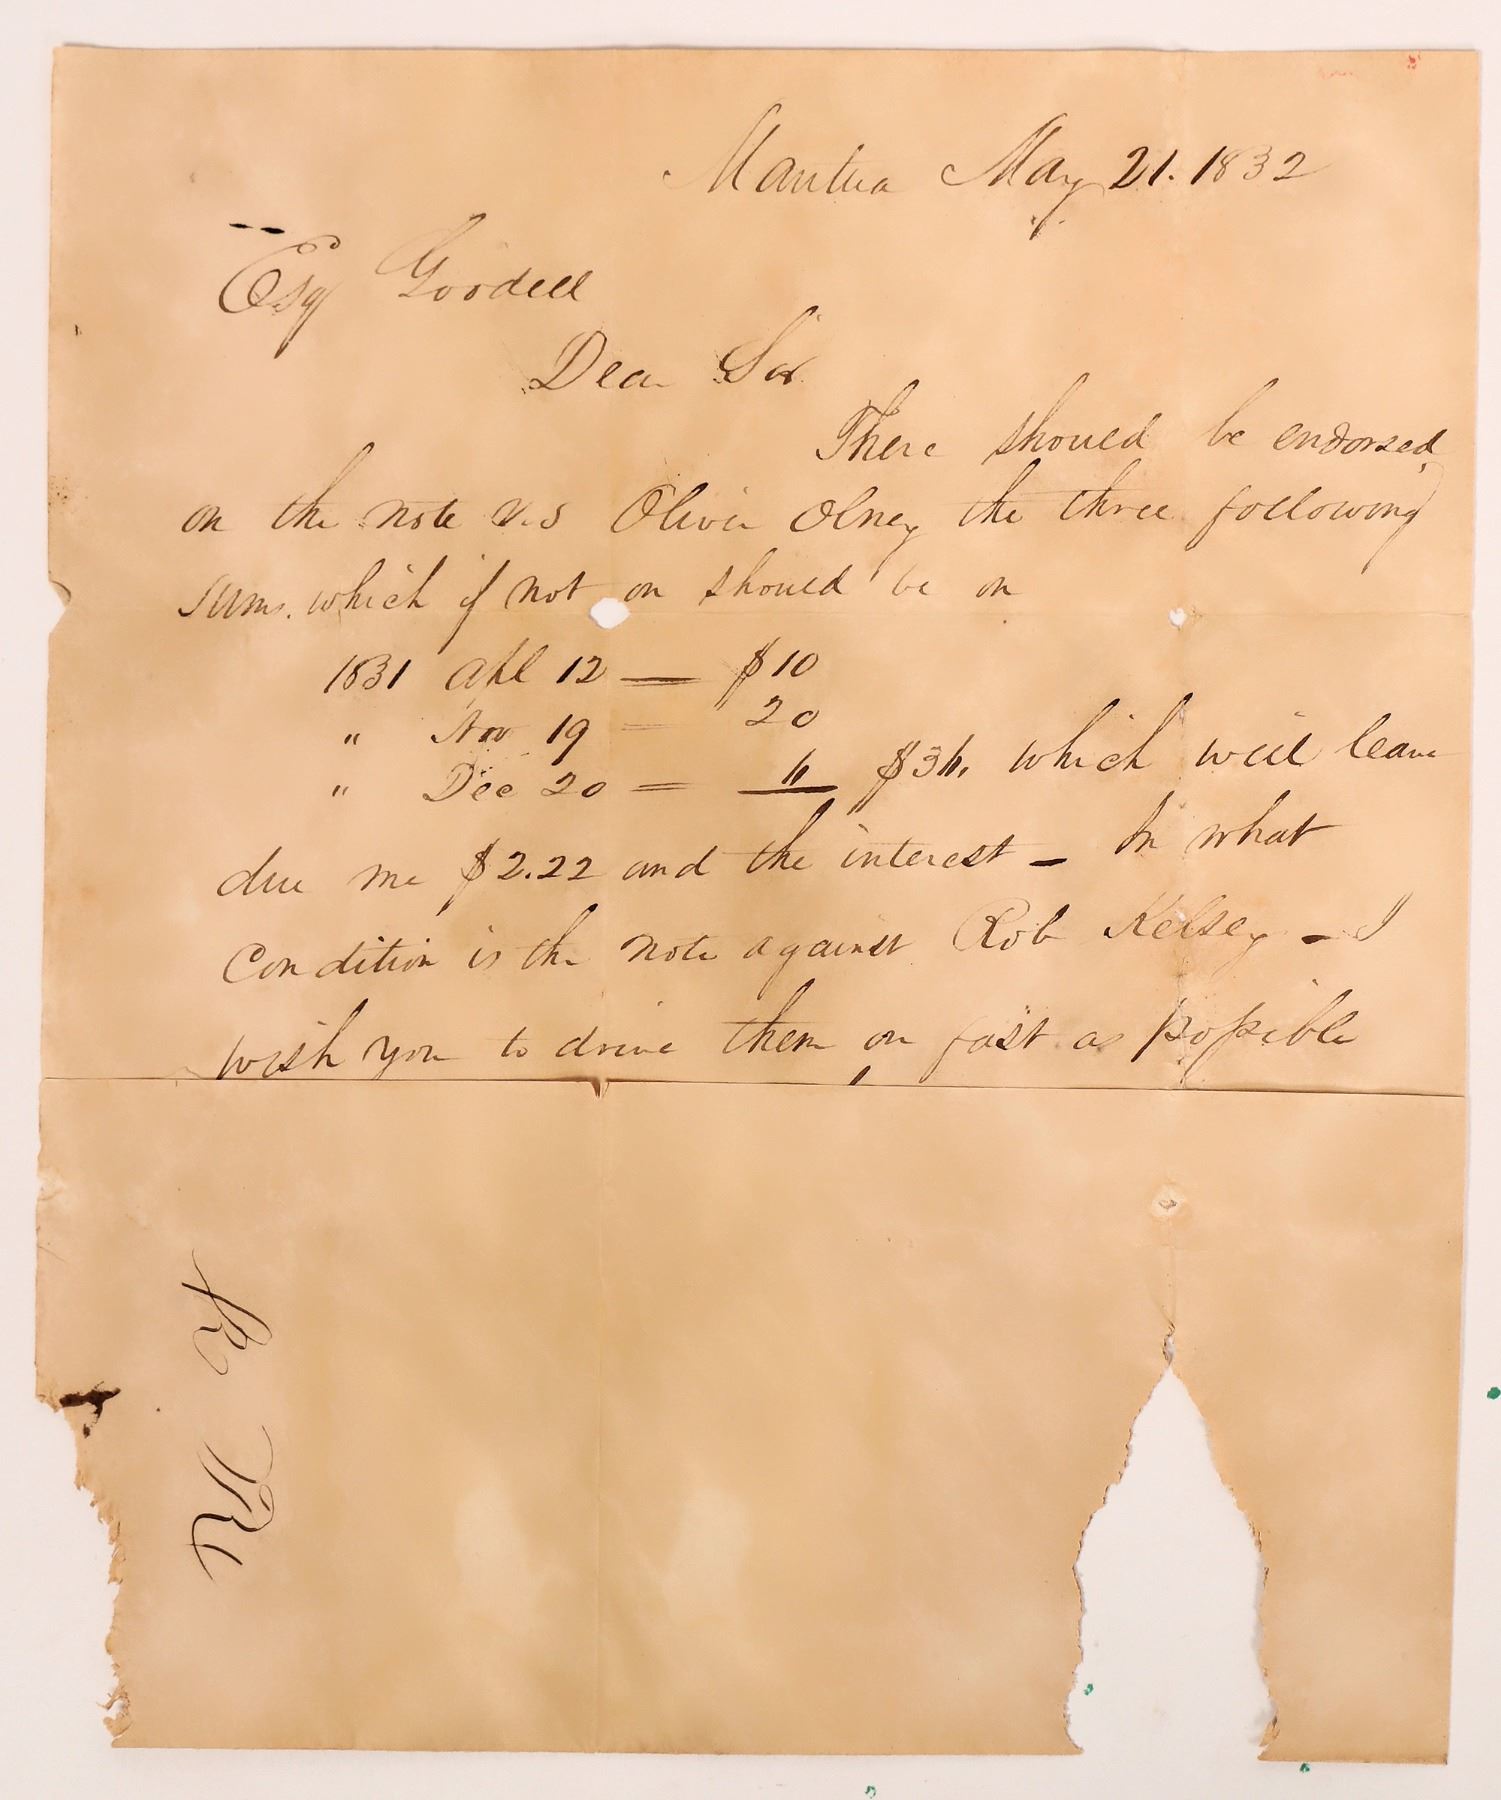 Mantua May 21. 1832
Esq Goodell
Dear Sir
There should be endorsed
on the note v.s Oliver Olney the three following
sums. which if not on should be on
1831 Apl 12 — $10
" Nov 19 = 20
" Dec 20 = 6 $36. which will leave
due me $2.22 and the interest — In what
Condition is the note against Rob Kelsey — I
wish you to drive them on fast as possible